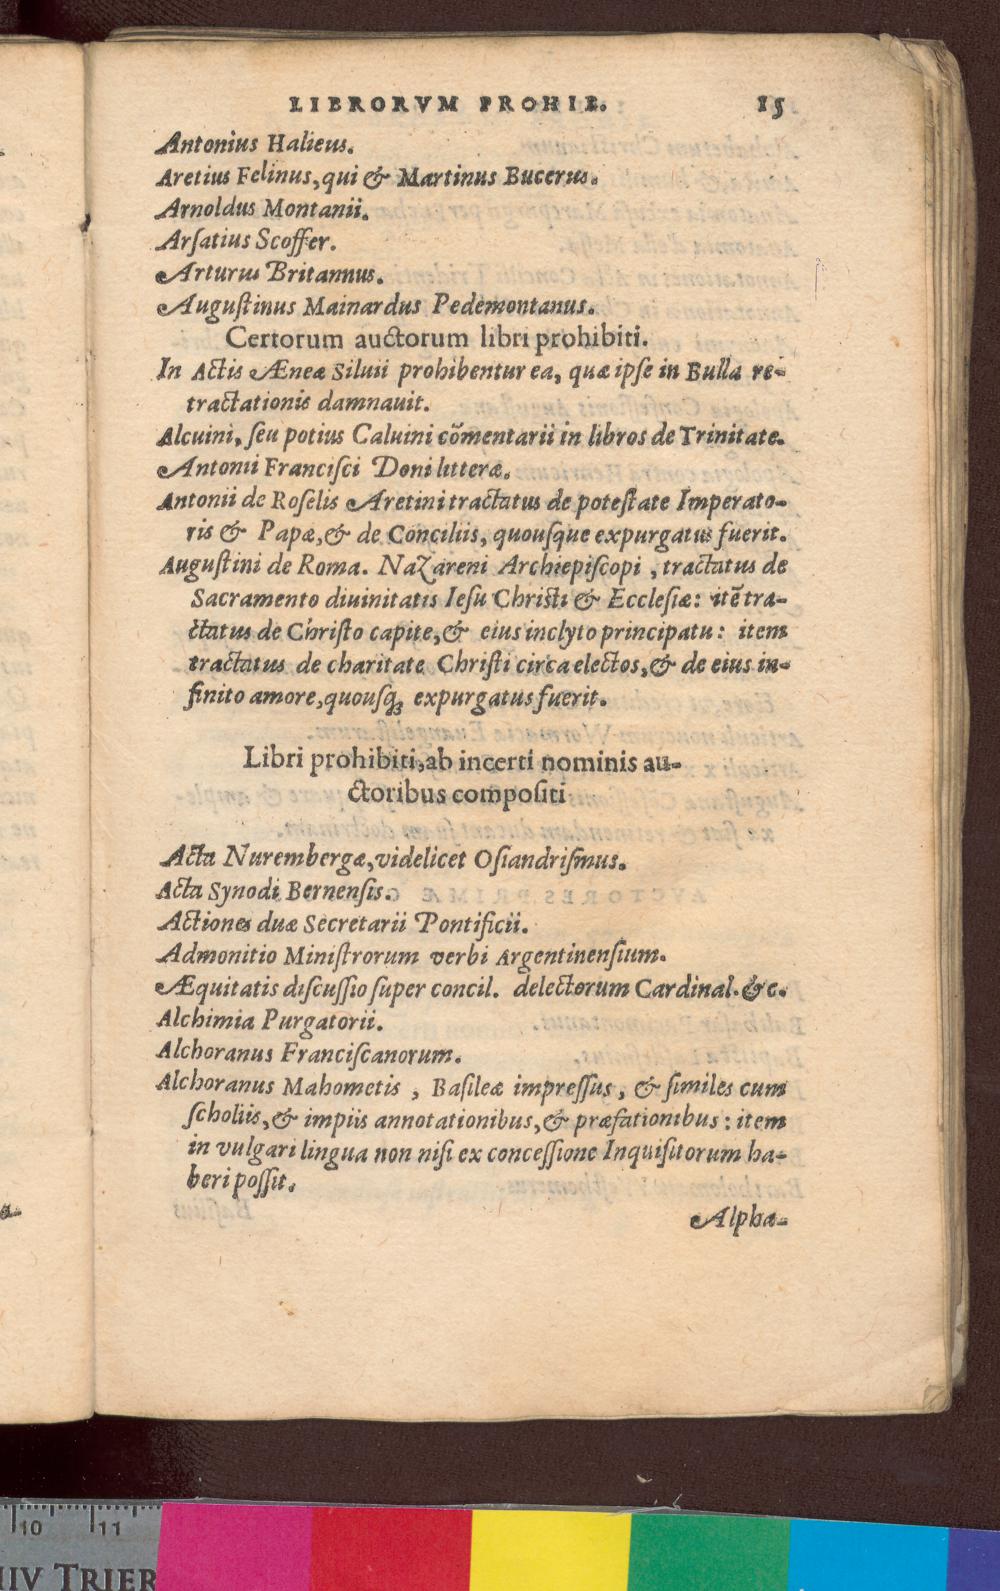 LIBRORVM PROHIB. 15
Antonius Halieus.
Aretius Felinus, qui & Martinus Bucerus.
Arnoldus Montanii.
Arſatius Scoffer.
Arturus Britannus.
Auguſtinus Mainardus Pedemontanus.
Certorum auctorum libri prohibiti.
In Actis Æneæ Siluii prohibentur ea, quæ ipſe in Bulla re-
tractationis damnauit.
Alcuini, ſeu potius Caluini cōmentarii in libros de Trinitate.
Antonii Franciſci Doni litteræ.
Antonii de Roſelis Aretini tractatus de poteſtate Imperato-
ris & Papæ, & de Conciliis, quouſque expurgatus fuerit.
Auguſtini de Roma. Nazareni Archiepiſcopi, tractatus de
Sacramento diuinitatis Ieſu Chriſti & Eccleſiæ: itē tra-
ctatus de Chriſto capite, & eius inclyto principatu: item
tractatus de charitate Chriſti circa electos, & de eius in-
finito amore, quouſq; expurgatus fuerit.
Libri prohibiti, ab incerti nominis au-
ctoribus compoſiti
Acta Nurembergæ, videlicet Oſiandriſmus.
Acta Synodi Bernenſis.
Actiones duæ Secretarii Pontificii.
Admonitio Miniſtrorum verbi Argentinenſium.
Æquitatis diſcuſſio ſuper concil. delectorum Cardinal. &c.
Alchimia Purgatorii.
Alchoranus Franciſcanorum.
Alchoranus Mahometis, Baſileæ impreſſus, & ſimiles cum
ſcholiis, & impiis annotationibus, & præfationibus: item
in vulgari lingua non niſi ex conceſſione Inquiſitorum ha-
beri poſſit.
Alpha-
a-
10 11
IV TRIER